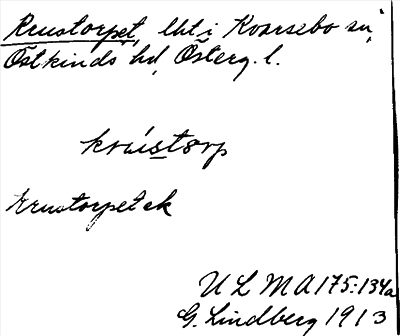 Krustorpet, lht i Kvarsebo sn,
Östkinds hd, Österg. l.
krústorp
Krustorpet ek
ULMA 175:134a
G. Lindberg 1913